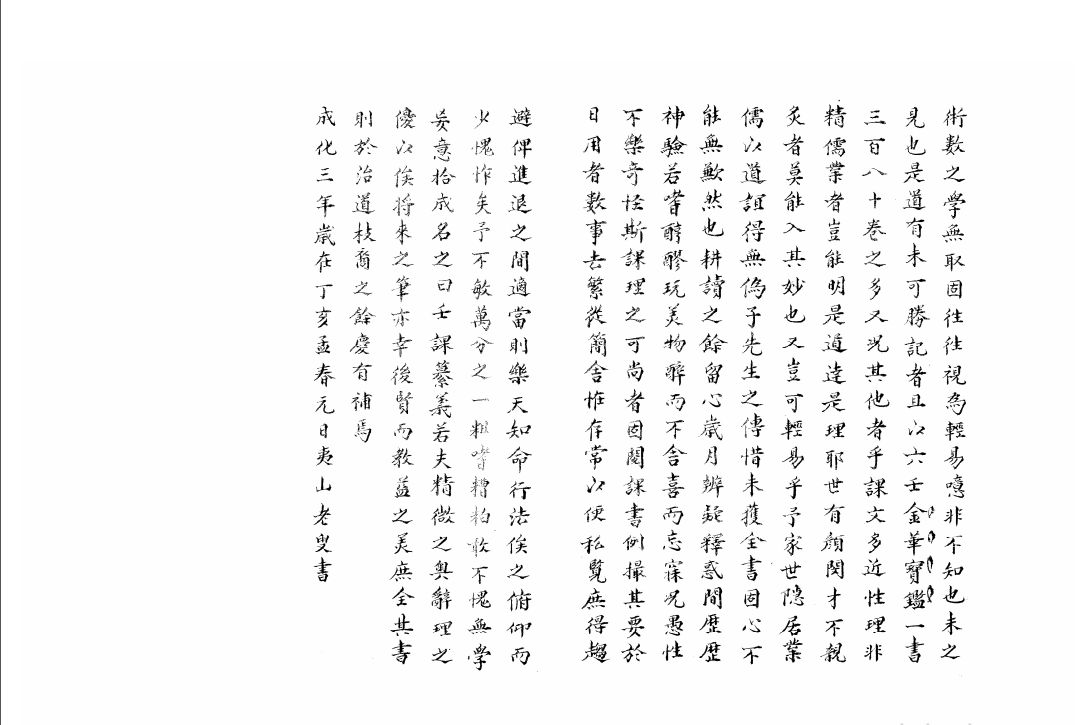 術數之學無取固往往視為輕易噫非不知也未之
見也是道有未可勝記者且以六壬金華寶鑑一書
三百八十卷之多又況其他者乎課文多近性理非
精儒業者豈能明是道達是理耶世有顔閔才不親
炙者莫能入其妙也又豈可輕易乎予家世隱居業
儒以道誼得無偽子先生之傳惜未獲全書固心不
能無歉然也耕讀之餘留心歲月辨疑釋惑間歷歷
神驗若嘗醇醪玩美物醉而不舍喜而忘寐況愚性
不樂奇怪斯課理之可尚者因閱課書例撮其要於
日用者數事去繁從簡舍怪存常以便私覽庶得趨
避俾進退之間適當則樂天知命行法俟之俯仰而
少愧怍矣予不敏萬分之一粗嗜糟粕敢不愧無學
妄意拾成名之曰壬課纂義若夫精微之奥辭理之
優以俟將來之筆亦幸後賢而教益之美庶全其書
則於治道枝裔之餘慶有補焉
成化三年歲在丁亥孟春元日夷山老叟書